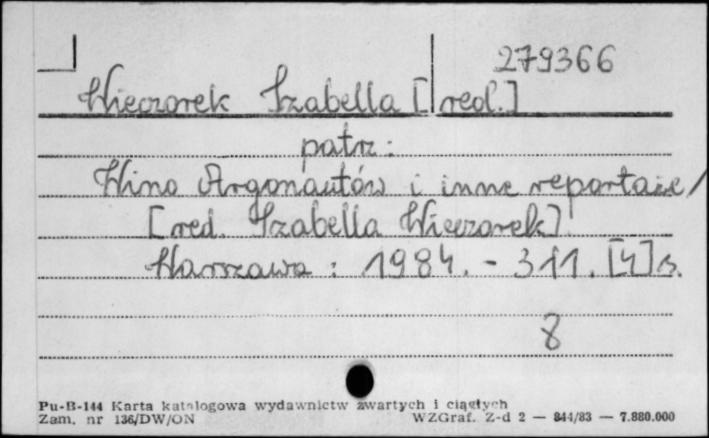 279366
Wieczorek Izabella [red.]
patrz:
Wino Argonautów i inne reportaże/
[red. Izabella Wieczorek]
Warszawa : 1984. - 311. [4] s.
8
Pu-B-144 Karta katalogowa wydawnictw zwartych i ciągłych
Zam. nr 136/DW/ON WZGraf. Z-d 2 — 844/83 — 7.880.000